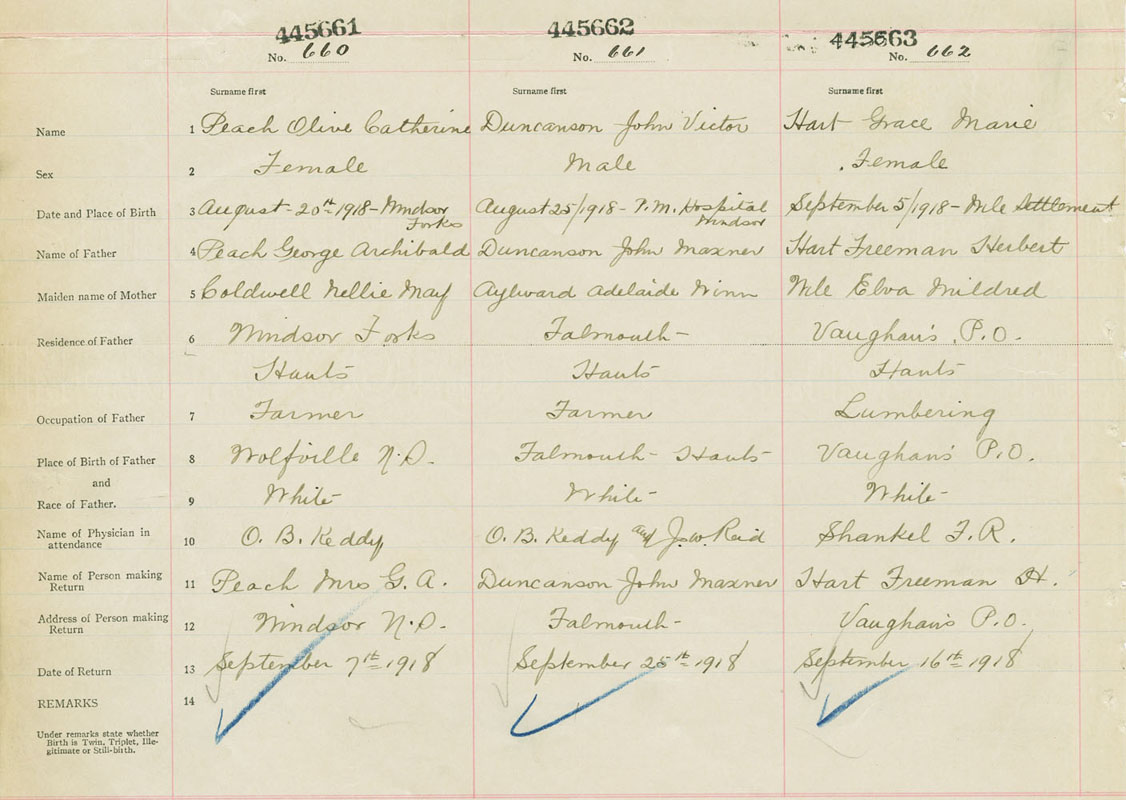 445661 445662 445663
No. 660 No. 661 No. 662
Surname first Surname first Surname first
Name 1 Peach Olive Catherine Duncanson John Victor Hart Grace Marie
Sex 2 Female Male Female
Date and Place of Birth 3 August 20th 1918 - Windsor Forks August 25/1918 - P.M. Hospital Windsor September 5/1918 - Mile Settlement
Name of Father 4 Peach George Archibald Duncanson John Maxner Hart Freeman Herbert
Maiden name of Mother 5 Coldwell Nellie May Aylward Adelaide Winn Elva Mildred
Residence of Father 6 Windsor Forks Falmouth Vaughan's P.O.
Hants Hants Hants
Occupation of Father 7 Farmer Farmer Lumbering
Place of Birth of Father 8 Wolfville N.S. Falmouth Hants Vaughan's P.O.
and
Race of Father. 9 White White White
Name of Physician in attendance 10 O. B. Keddy O. B. Keddy and J.W. Reid Shankel F.R.
Name of Person making Return 11 Peach Mrs G. A. Duncanson John Maxner Hart Freeman H.
Address of Person making Return 12 Windsor N.S. Falmouth Vaughan's P.O.
Date of Return 13 September 7th 1918 September 25th 1918 September 16th 1918
REMARKS 14
Under remarks state whether
Birth is Twin, Triplet, Ille-
gitimate or Still-birth.